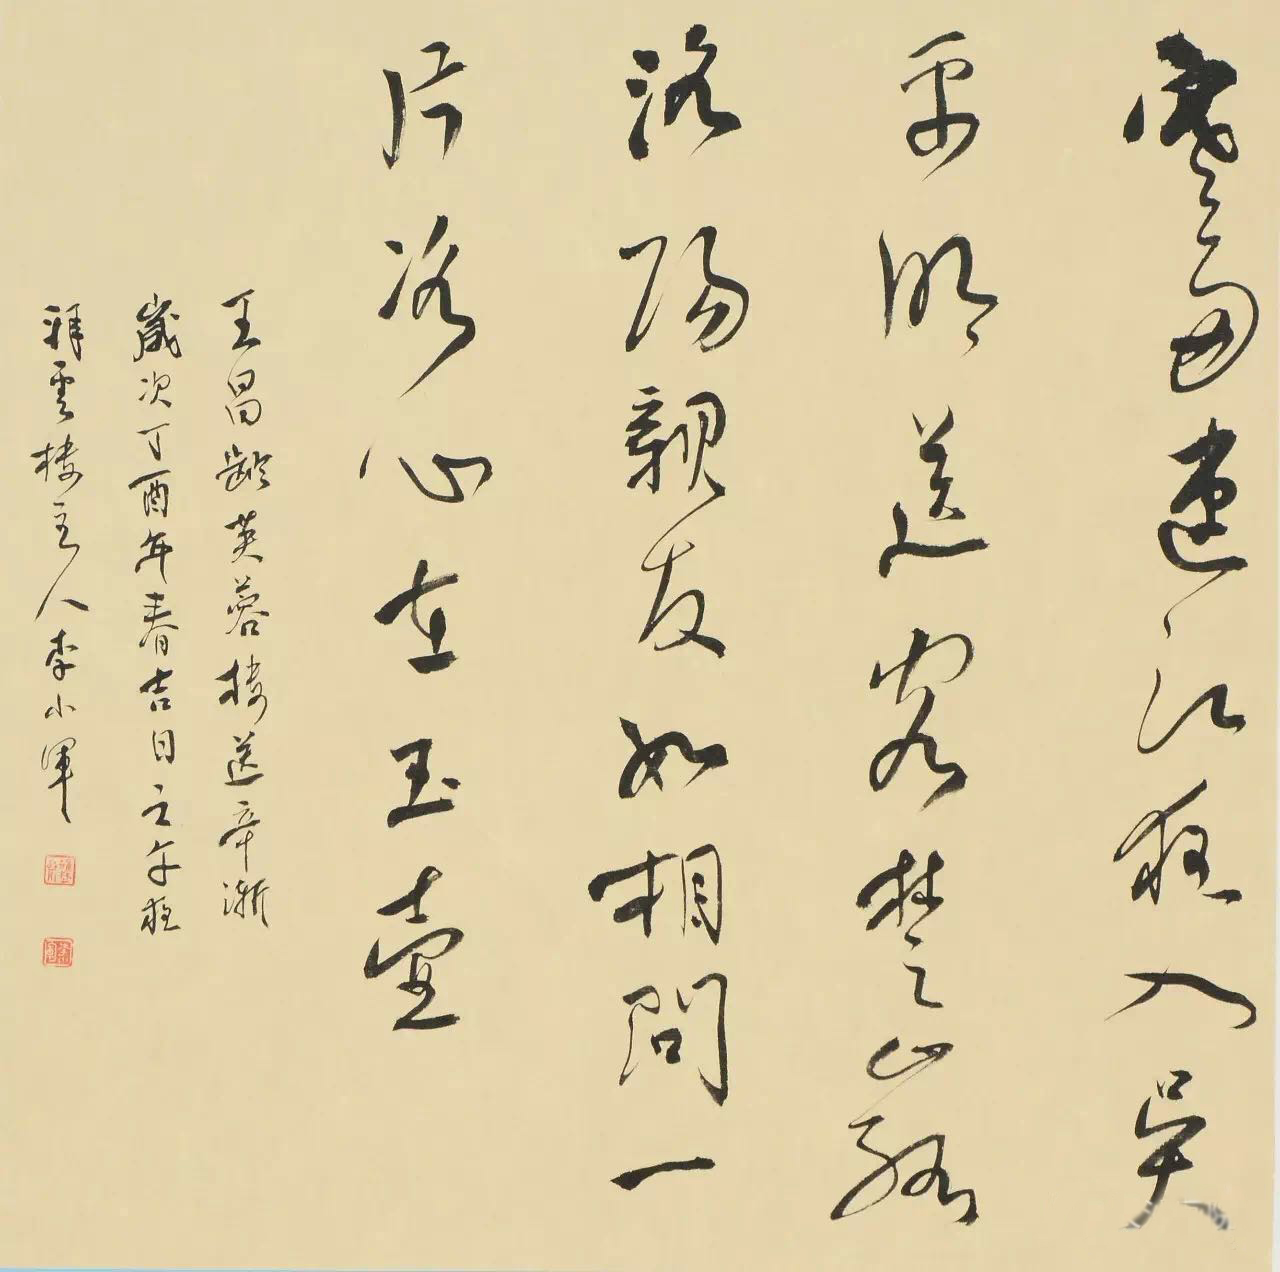 寒雨連江夜入吴
平明送客楚山孤
洛陽親友如相問一
片冰心在玉壺
王昌齡芙蓉樓送辛漸
歲次丁酉年春吉日之午夜
雲樓主人李小軍